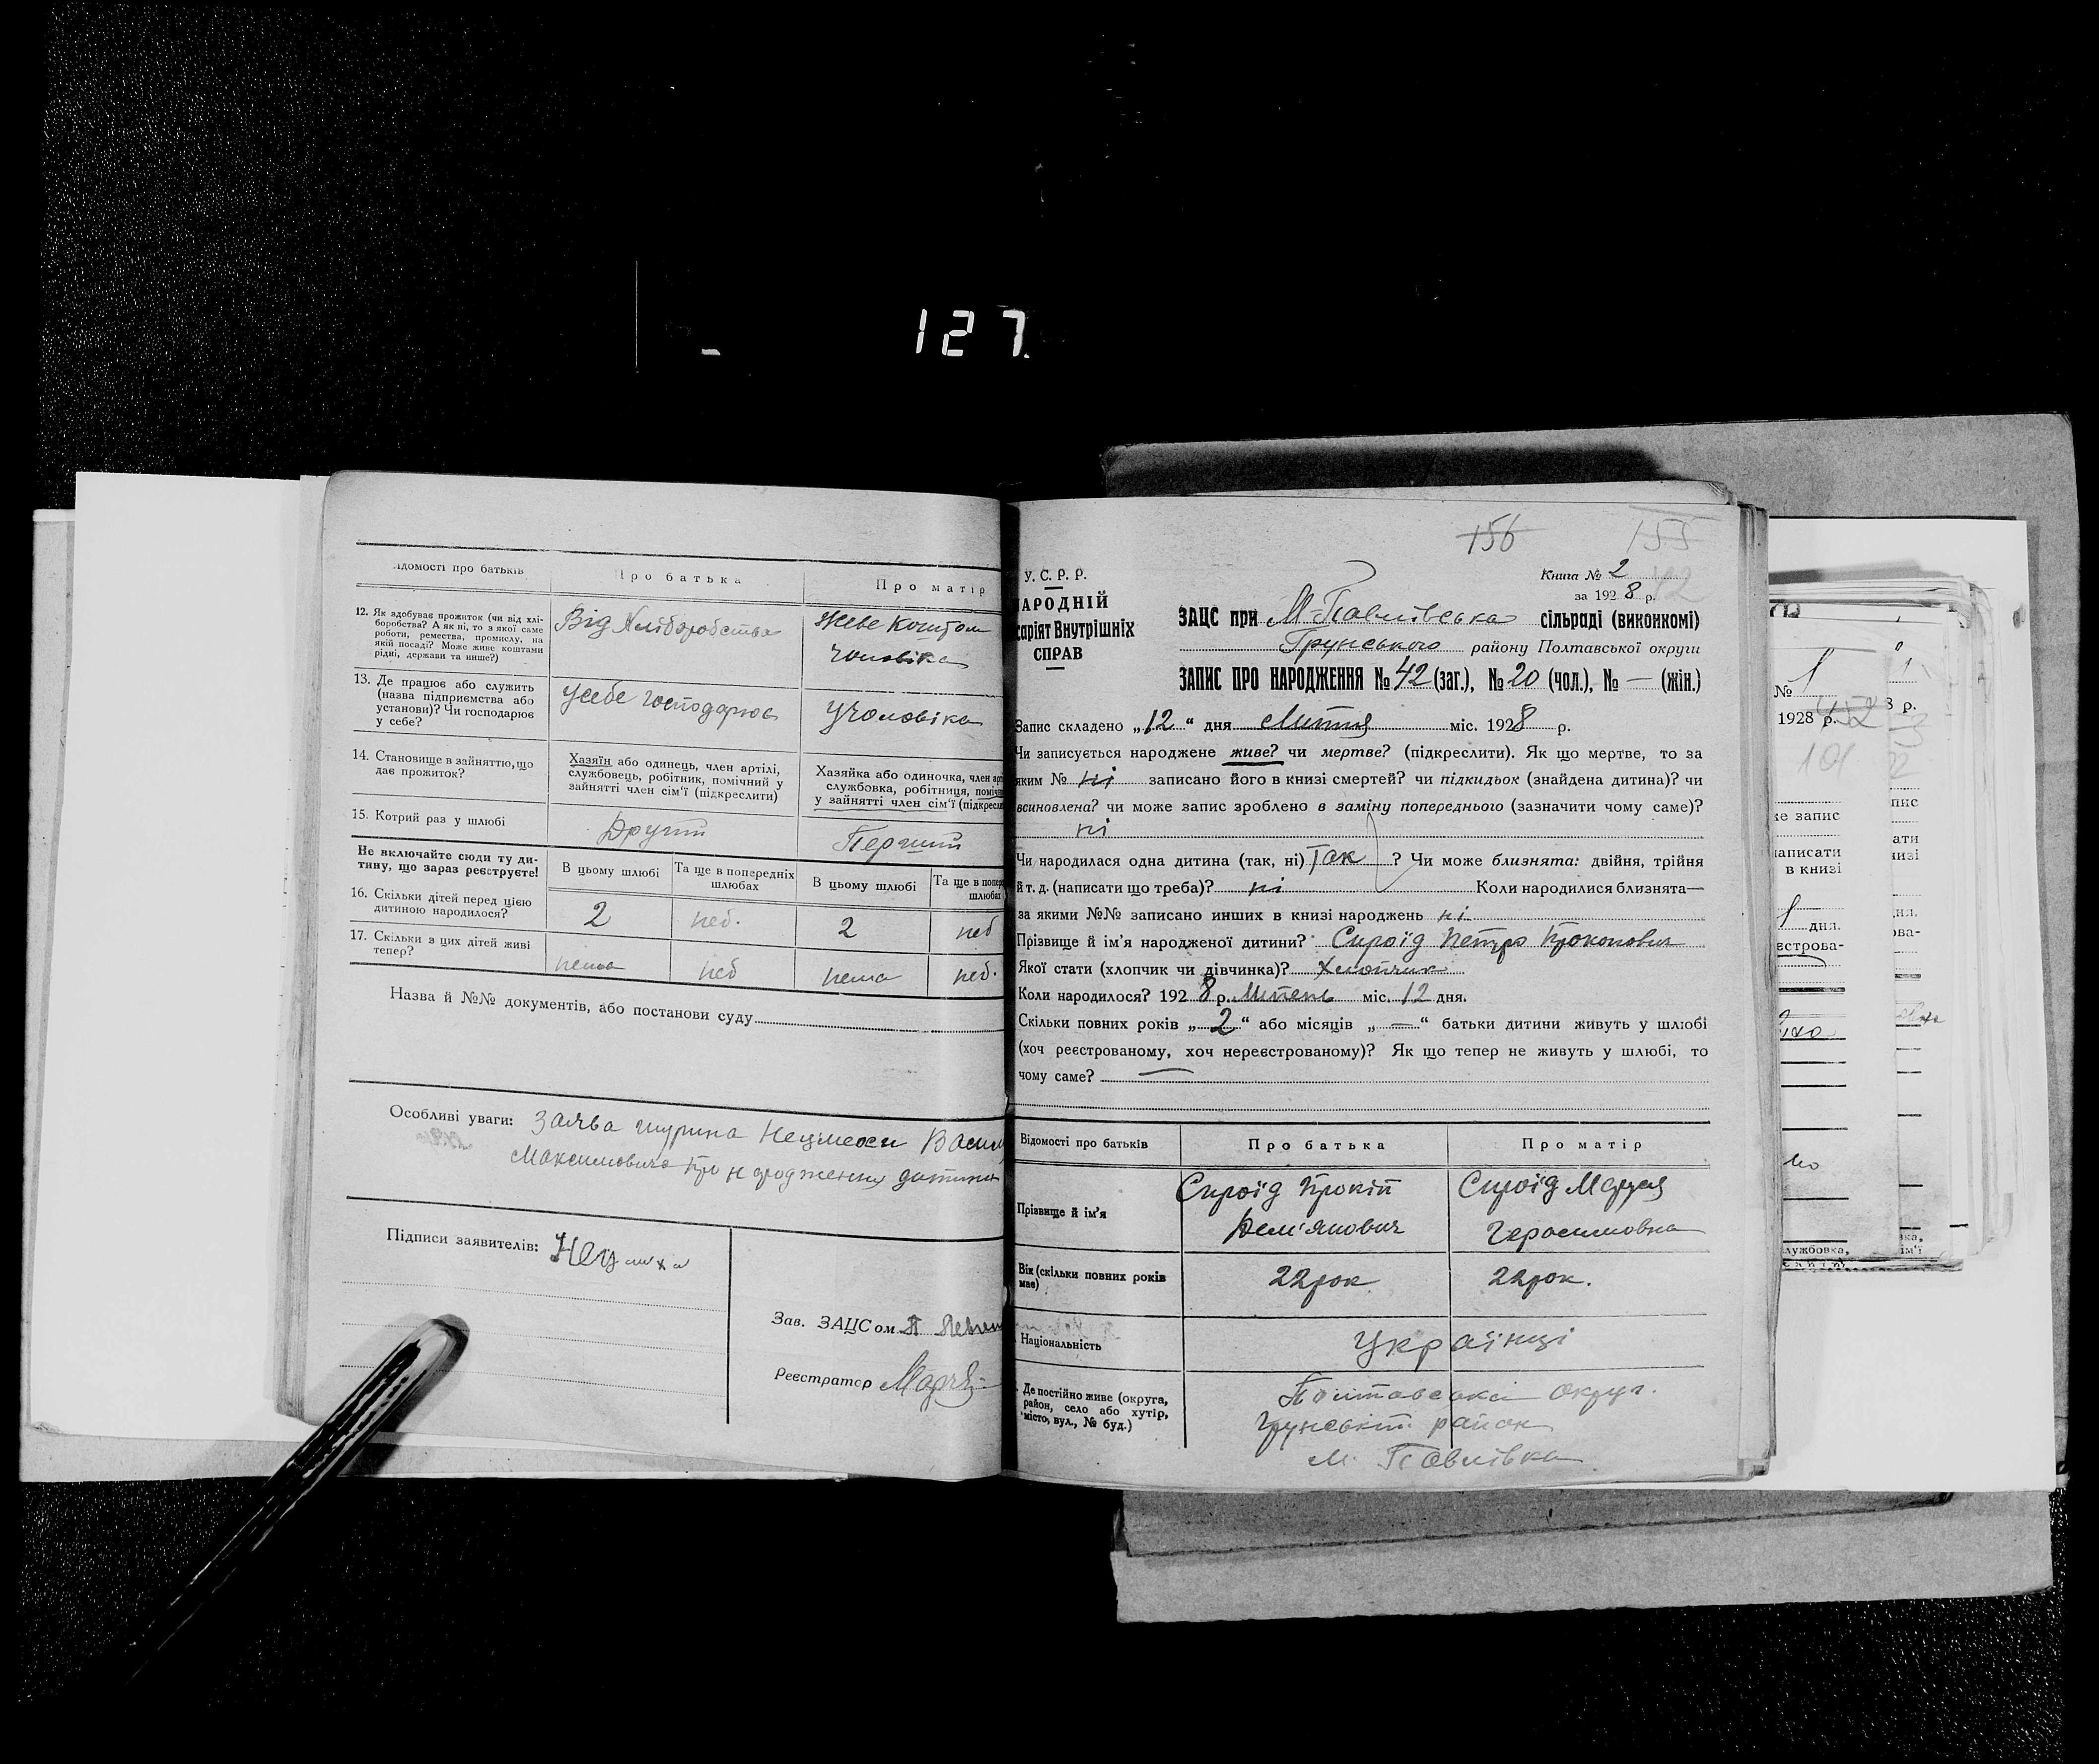 127.
ідомості про батьків
Про батька
Про матір
12. Як здобуває прожиток (чи від хлі-
боробства? А як ні, то з якої саме
роботи, ремества, промислу, на
якій посаді? Може живе коштами
рідні, держави та инше?)
Від Хліборобства
живе коштом
чоловіка
13. Де працює або служить
(назва підприємства або
установи)? Чи господарює
у себе?
у себе господарює
у чоловіка
14. Становище в зайняттю, що
дає прожиток?
Хазяїн або одинець, член артілі,
службовець, робітник, помічний у
зайнятті член сім'ї (підкреслити)
Хазяйка або одиночка, член арт
службовка, робітниця, поміч
у зайнятті член сім'ї (підкресл
15. Котрий раз у шлюбі
Другий
Перший
Не включайте сюди ту ди-
тину, що зараз реєструєте!
В цьому шлюбі
Та ще в попередніх
шлюбах
В цьому шлюбі
Та ще в попер
шлюбах
16. Скільки дітей перед цією
дитиною народилося?
2
неб.
2
неб
17. Скільки з цих дітей живі
тепер?
нема
неб
нема
неб.
Назва й №№ документів, або постанови суду
Особливі уваги: Заява шурина Василя
Максимовича про народження дитини
Підписи заявителів:
Зав. ЗАЦСом
Реєстратор
156
155
У. С. Р. Р.
АРОДНІЙ
саріят Внутрішніх
СПРАВ
Книга № 2
за 1928 р.
ЗАЦС при М-Павлівська сільраді (виконкомі)
Грунського району Полтавської округи
ЗАПИС ПРО НАРОДЖЕННЯ № 42 (заг.), № 20 (чол.), № — (жін.)
Запис складено „12“ дня Липня міс. 1928 р.
Чи записується народжене живе? чи мертве? (підкреслити). Як що мертве, то за
яким № ні записано його в книзі смертей? чи підкидьок (знайдена дитина)? чи
всиновлена? чи може запис зроблено в заміну попереднього (зазначити чому саме)?
ні
Чи народилася одна дитина (так, ні) Так ? Чи може близнята: двійня, трійня
й т. д. (написати що треба)? ні Коли народилися близнята—
за якими №№ записано инших в книзі народжень ні
Прізвище й ім'я народженої дитини? Сироїд Петро Прокопович
Якої стати (хлопчик чи дівчинка)? Хлопчик
Коли народилося? 1928 р. Липень міс. 12 дня.
Скільки повних років „2“ або місяців „—“ батьки дитини живуть у шлюбі
(хоч реєстрованому, хоч нереєстрованому)? Як що тепер не живуть у шлюбі, то
чому саме? —
Відомості про батьків
Про батька
Про матір
Прізвище й ім'я
Сироїд Прокіп
Дем'янович
Сироїд Марія
Герасимовна
Вік (скільки повних років
має)
22 рок
22 рок.
Національність
Українці
Де постійно живе (округа,
район, село або хутір,
місто, вул., № буд.)
Полтавська округ.
Грунський район
М. Павлівка
№ 1
1928 р.
101